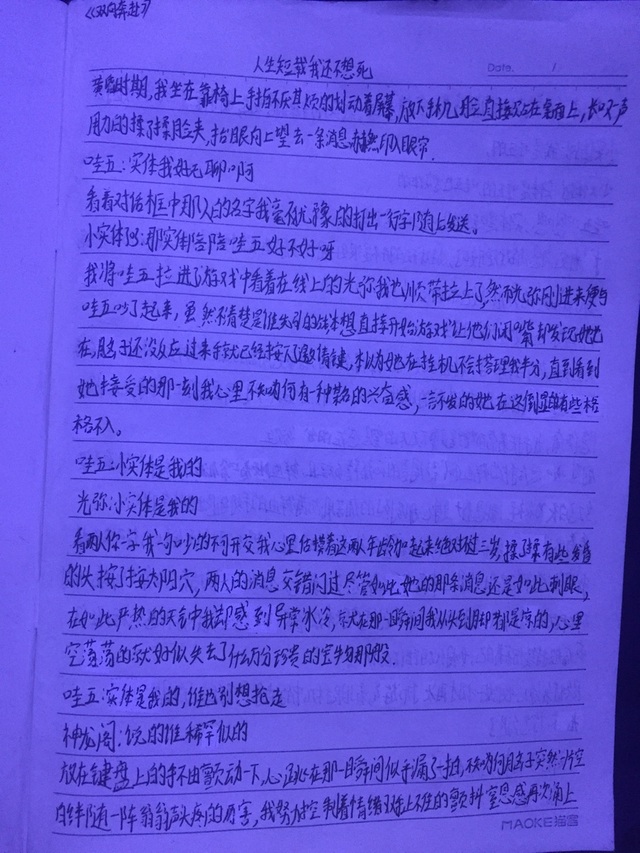 《双向奔赴》
人生短哉我还不想死
Date. /
黄昏时期,我坐在靠椅上手指不厌其烦的划动着屏幕,放下手机,脸直接趴在桌面上,长叹一声
用力的揉了揉脸夹,抬眼向上望去一条消息赫然印入眼帘.
哇五:实体我好无聊啊
看着对话框中那人的名字我毫不犹豫的打出一行字随后发送。
小实体:那实体陪陪哇五好不好呀
我将哇五拉进了游戏中看着在线上的光弥我也顺带拉上了,然而光弥刚进来便与
哇五吵了起来,虽然不清楚是谁先的本想直接开始游戏让他们闭嘴却发现她也
在,脑子还没反应过来手就已经按下了邀请键,本以为她在挂机不会搭理我半分,直到看到
她接受的那一刻我心里不知为何有一种莫名的兴奋感,一言不发的她在这倒显的有些格
格不入。
哇五:小实体是我的
光弥:小实体是我的
看两人你一字我一句吵的不可开交我心里估摸着这两人年龄加起来绝对不超过三岁,揉了揉有些发昏
的头按了按太阳穴,两人的消息交错闪过尽管如此她的那条消息还是如此刺眼,
在如此严热的天气中我却感到异常冰冷,就在那一瞬间我从头到脚都是凉的,心里
空落落的就好似失去了什么万分珍贵的宝物那般.
哇五:实体是我的,谁也别想抢走
神龙阁:说的谁稀罕似的
放在键盘上的手不由颤动一下,心跳在那一瞬间似乎漏了一拍,不知为何脑子突然一片空
白伴随一阵翁翁声头疼的厉害,我努力控制着情绪手止不住的颤抖窒息感再次涌上
MAOKE猫客